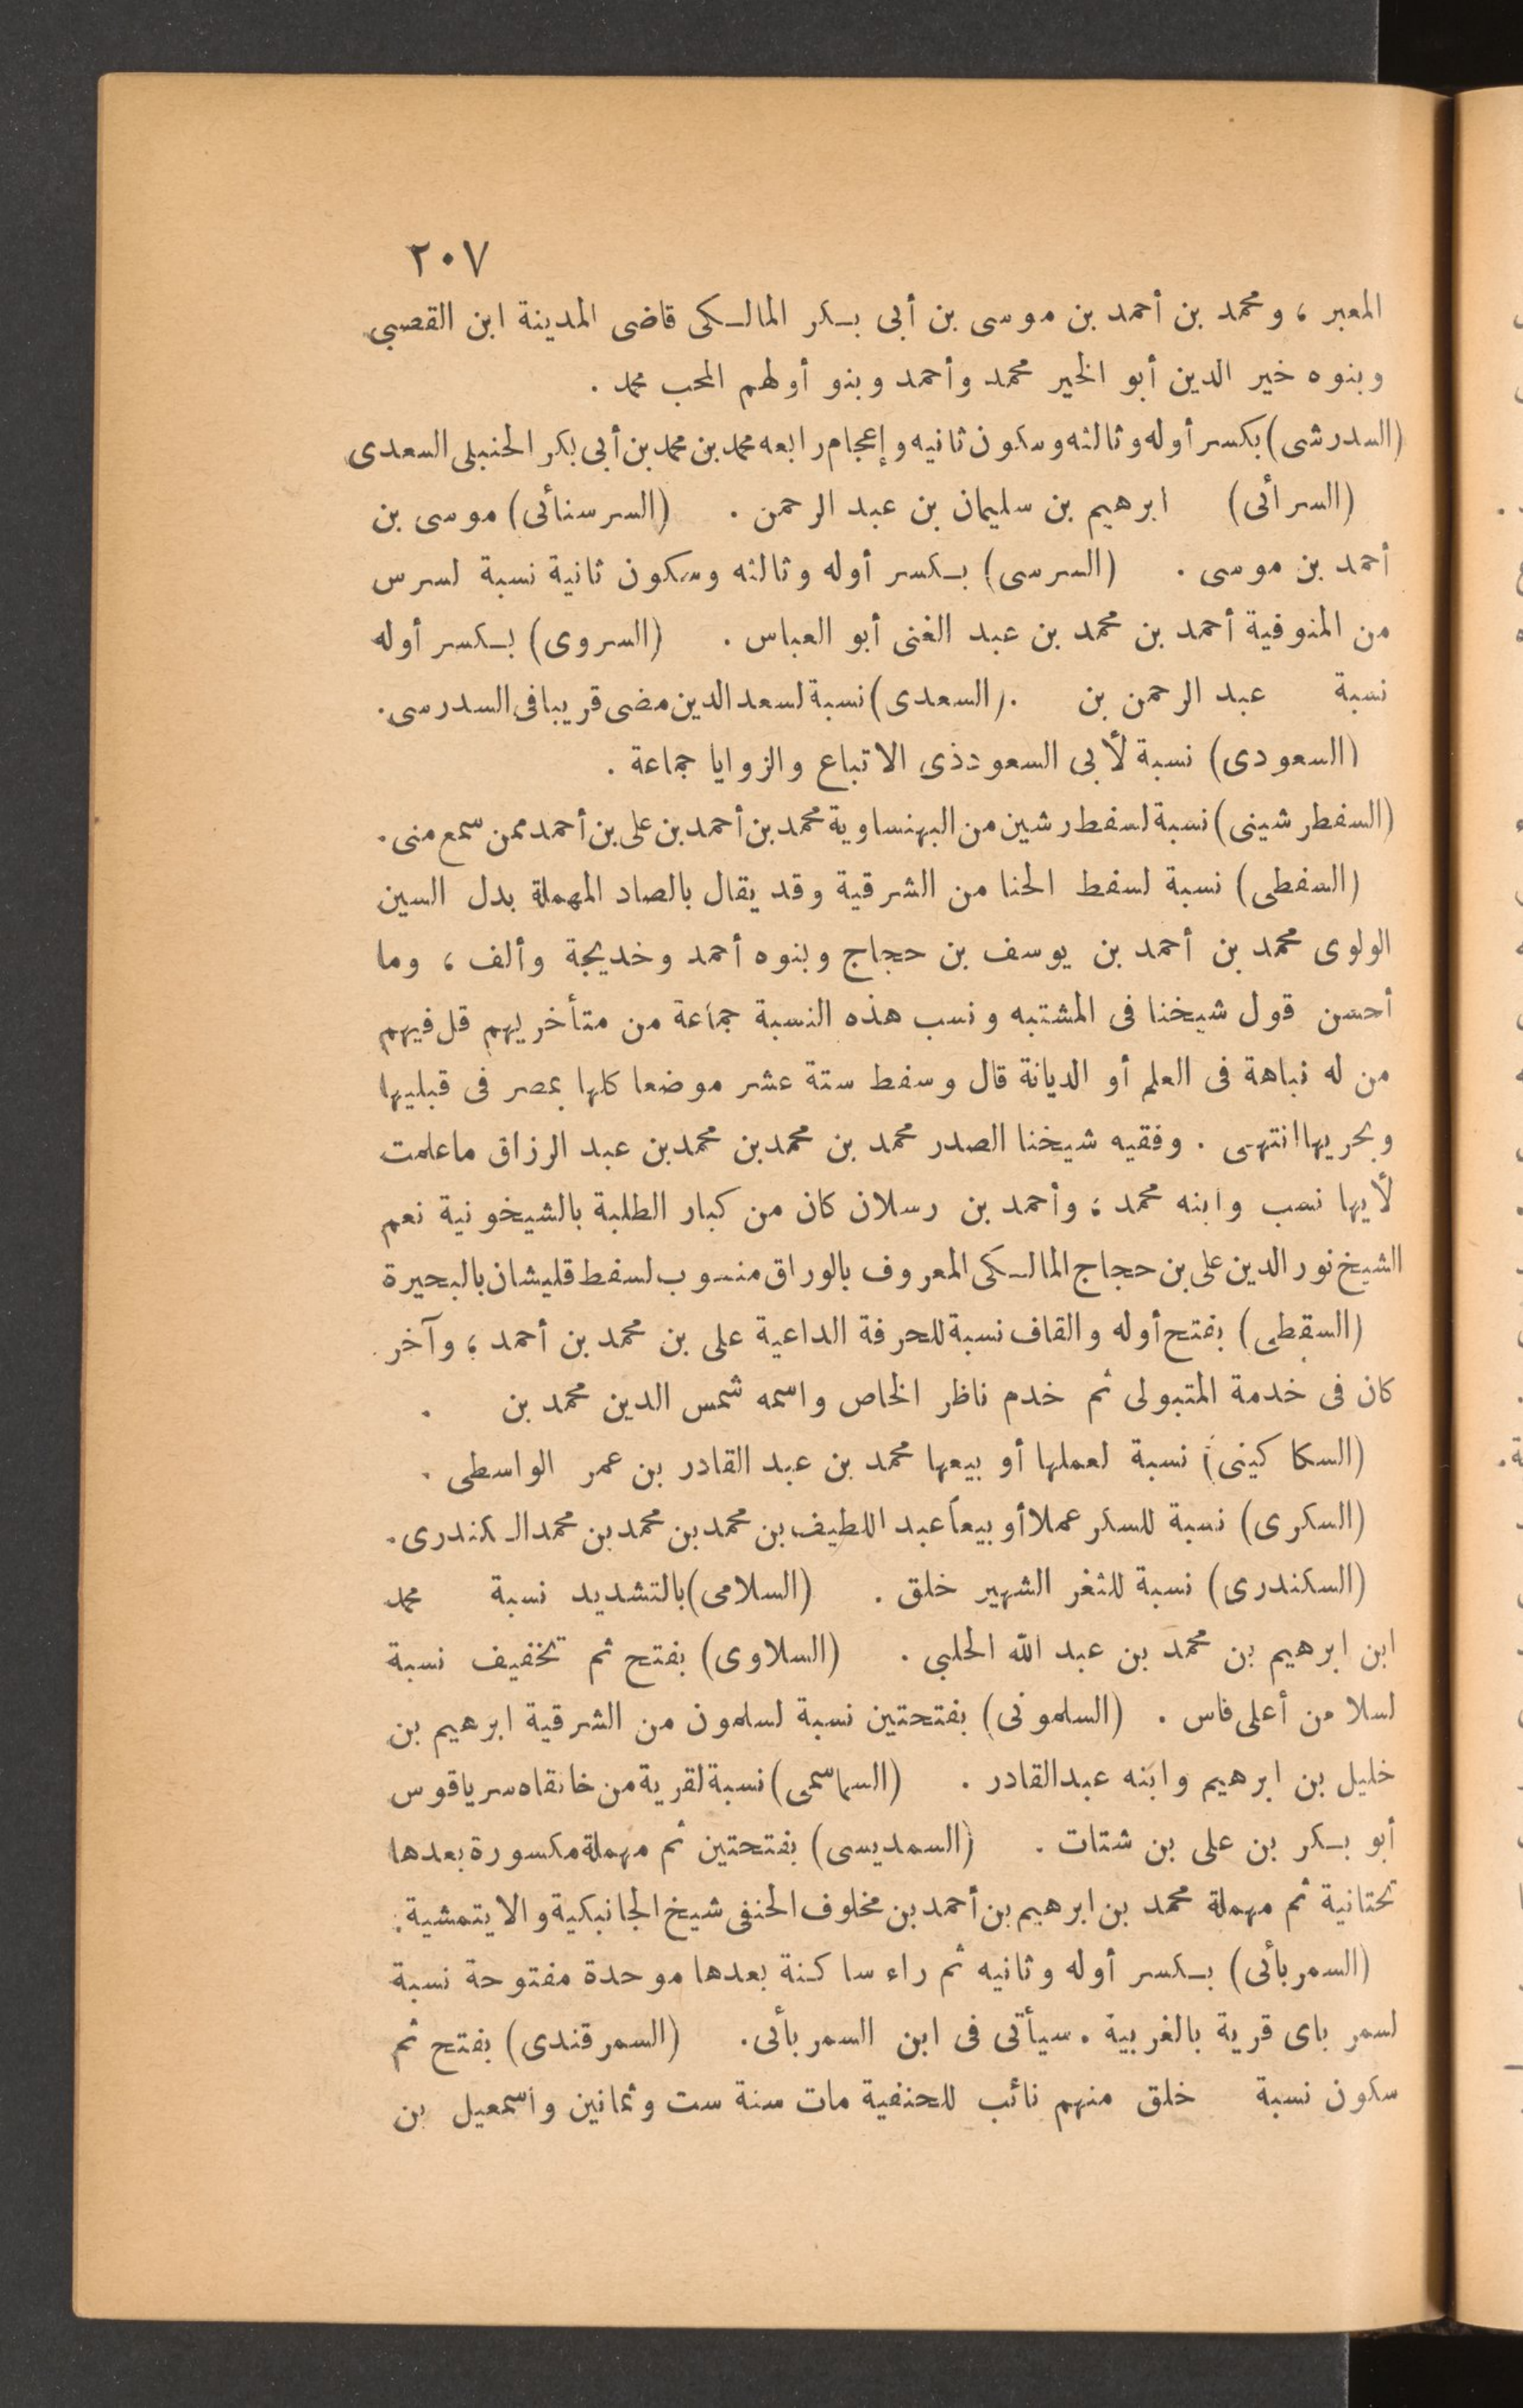 ٢٠٧
المعبر ، ومحمد بن أحمد بن موسى بن أبى بكر المالكى قاضى المدينة ابن القصبي
وبنوه خير الدين أبو الخير محمد وأحمد وبنو أولهم المحب محمد .
(السدرشى) بكسر أوله وثالثه وسكون ثانيه وإعجام رابعه محمد بن محمد بن أبى بكر الحنبلى السعدى
(السرأئى) ابرهيم بن سليمان بن عبد الرحمن . (السرسنائى) موسى بن
أحمد بن موسى . (السرسى) بكسر أوله وثالثه وسكون ثانية نسبة لسرس
من المنوفية أحمد بن محمد بن عبد الغنى أبو العباس . (السروى) بكسر أوله
نسبة عبد الرحمن بن . (السعدى) نسبة لسعد الدين مضى قريبا فى السدرسى .
(السعودى) نسبة لأبى السعود ذى الاتباع والزوايا جماعة .
(السفطرشينى) نسبة لسفط رشين من البهنساوية محمد بن أحمد بن على بن أحمد ممن سمع منى .
(السفطى) نسبة لسفط الحنا من الشرقية وقد يقال بالصاد المهملة بدل السين
الولوى محمد بن أحمد بن يوسف بن حجاج وبنوه أحمد وخديجة وألف ، وما
أحسن قول شيخنا فى المشتبه ونسب هذه النسبة جماعة من متأخريهم قل فيهم
من له نباهة فى العلم أو الديانة قال وسفط ستة عشر موضعا كلها بمصر فى قبليها
وبحريها انتهى . وفقيه شيخنا الصدر محمد بن محمد بن محمد بن عبد الرزاق ماعلمت
لأيها نسب وابنه محمد ؛ وأحمد بن رسلان كان من كبار الطلبة بالشيخونية نعم
الشيخ نور الدين على بن حجاج المالكى المعروف بالوراق منسوب لسفط قليشان بالبحيرة
(السقطى) بفتح أوله والقاف نسبة للحرفة الداعية على بن محمد بن أحمد ؛ وآخر
كان فى خدمة المتبولى ثم خدم ناظر الخاص واسمه شمس الدين محمد بن .
(السكاكينى) نسبة لعملها أو بيعها محمد بن عبد القادر بن عمر الواسطى .
(السكرى) نسبة للسكر عملا أو بيعاً عبد اللطيف بن محمد بن محمد بن محمد الكندرى .
(السكندرى) نسبة للثغر الشهير خلق . (السلامى) بالتشديد نسبة محمد
ابن ابرهيم بن محمد بن عبد الله الحلبي . (السلاوى) بفتح ثم تخفيف نسبة
لسلا من أعلى فاس . (السلمونى) بفتحتين نسبة لسلمون من الشرقية ابرهيم بن
خليل بن ابرهيم وابنه عبد القادر . (السماسمى) نسبة لقرية من خانقاه سرياقوس
أبو بكر بن على بن شتات . (السمديسى) بفتحتين ثم مهملة مكسورة بعدها
تحتانية ثم مهملة محمد بن ابرهيم بن أحمد بن مخلوف الحنفى شيخ الجانبكية والايتمشية .
(السمربأئى) بكسر أوله وثانيه ثم راء ساكنة بعدها موحدة مفتوحة نسبة
لسمر باى قرية بالغربية . سيأتى فى ابن السمربأئى . (السمرقندى) بفتح ثم
سكون نسبة خلق منهم نائب للحنفية مات سنة ست وثمانين واسمعيل بن